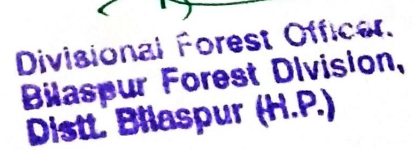 Divisional Forest Officer.
Bilaspur Forest Division,
Distt. Bilaspur (H.P.)